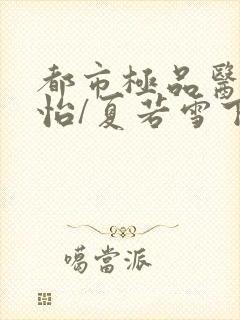 都市極品醫
怡/夏若雪下
噶當派